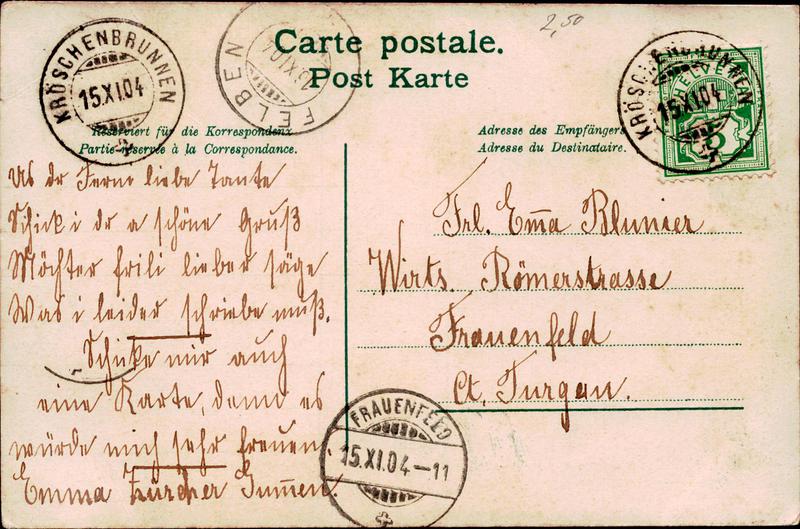 2,50
Carte postale.
Post Karte
KRÖSCHENBRUNNEN
15.XI.04
FELBEN
15.XI.04
KRÖSCHENBRUNNEN
15.XI.04
HELVETIA
5
Reserviert für die Korrespondenz
Partie réservée à la Correspondance.
Adresse des Empfängers
Adresse du Destinataire.
Us dr Ferne liebe Tante
Schick i dr a schöne Gruß
Möchter frili lieber säge
Was i leider schriebe muß.
Schicke mir auch
eine Karte, denn es
würde mich sehr freuen.
Emma Zürcher Gummen.
Frl. Emma Blunier
Wirts. Römerstrasse
Frauenfeld
Ct. Turgau.
FRAUENFELD
15.XI.04-11